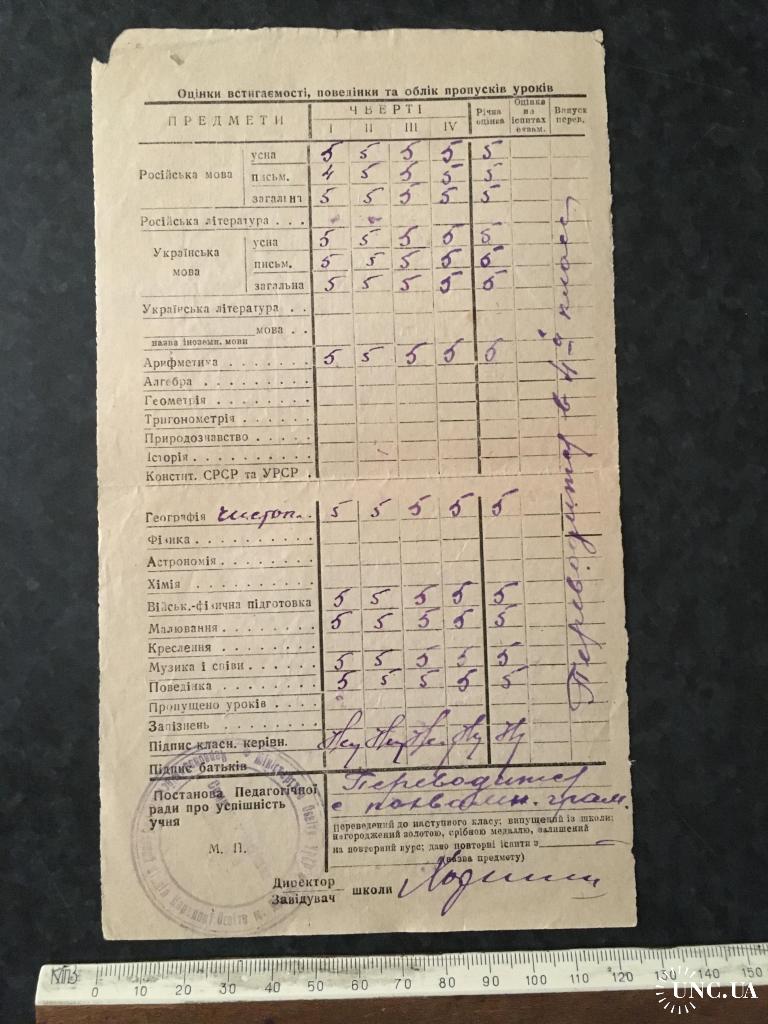 Оцінки встигаємості, поведінки та облік пропусків уроків
ПРЕДМЕТИ
ЧВЕРТІ
I II III IV
Річна оцінка
Оцінка на іспитах екзам.
Випуск перев.
Російська мова
усна 5 5 5 5 5
письм. 4 5 5 5 5
загальна 5 5 5 5 5
Російська література . . .
Українська мова
усна 5 5 5 5 5
письм. 5 5 5 5 5
загальна 5 5 5 5 5
Українська література . .
мова . .
назва іноземн. мови
Арифметика 5 5 5 5 5
Алгебра . . . . . . . . .
Геометрія . . . . . . . .
Тригонометрія . . . . . .
Природознавство . . . . .
Історія . . . . . . . . .
Констит. СРСР та УРСР .
Географія чистоп. 5 5 5 5 5
Фізика . . . . . . . . .
Астрономія . . . . . . .
Хімія . . . . . . . . .
Військ.-фізична підготовка 5 5 5 5 5
Малювання . . . . . . . 5 5 5 5 5
Креслення . . . . . . .
Музика і співи . . . . . 5 5 5 5 5
Поведінка . . . . . . . 5 5 5 5 5
Пропущено уроків . . . .
Запізнень . . . . . . .
Підпис класн. керівн.
Підпис батьків
Переводится в 4-й класс
Постанова Педагогічної
ради про успішність
учня
М. П.
Переводится
с похвальн. грам.
Переведений до наступного класу; випущений із школи;
нагороджений золотою, срібною медаллю, залишений
на повторний курс; дано повторні іспити з
(назва предмету)
Директор
Завідувач
школи
МПЗ 0 10 20 30 40 50 60 70 80 90 100 110 120 130 140 150
UNC.UA